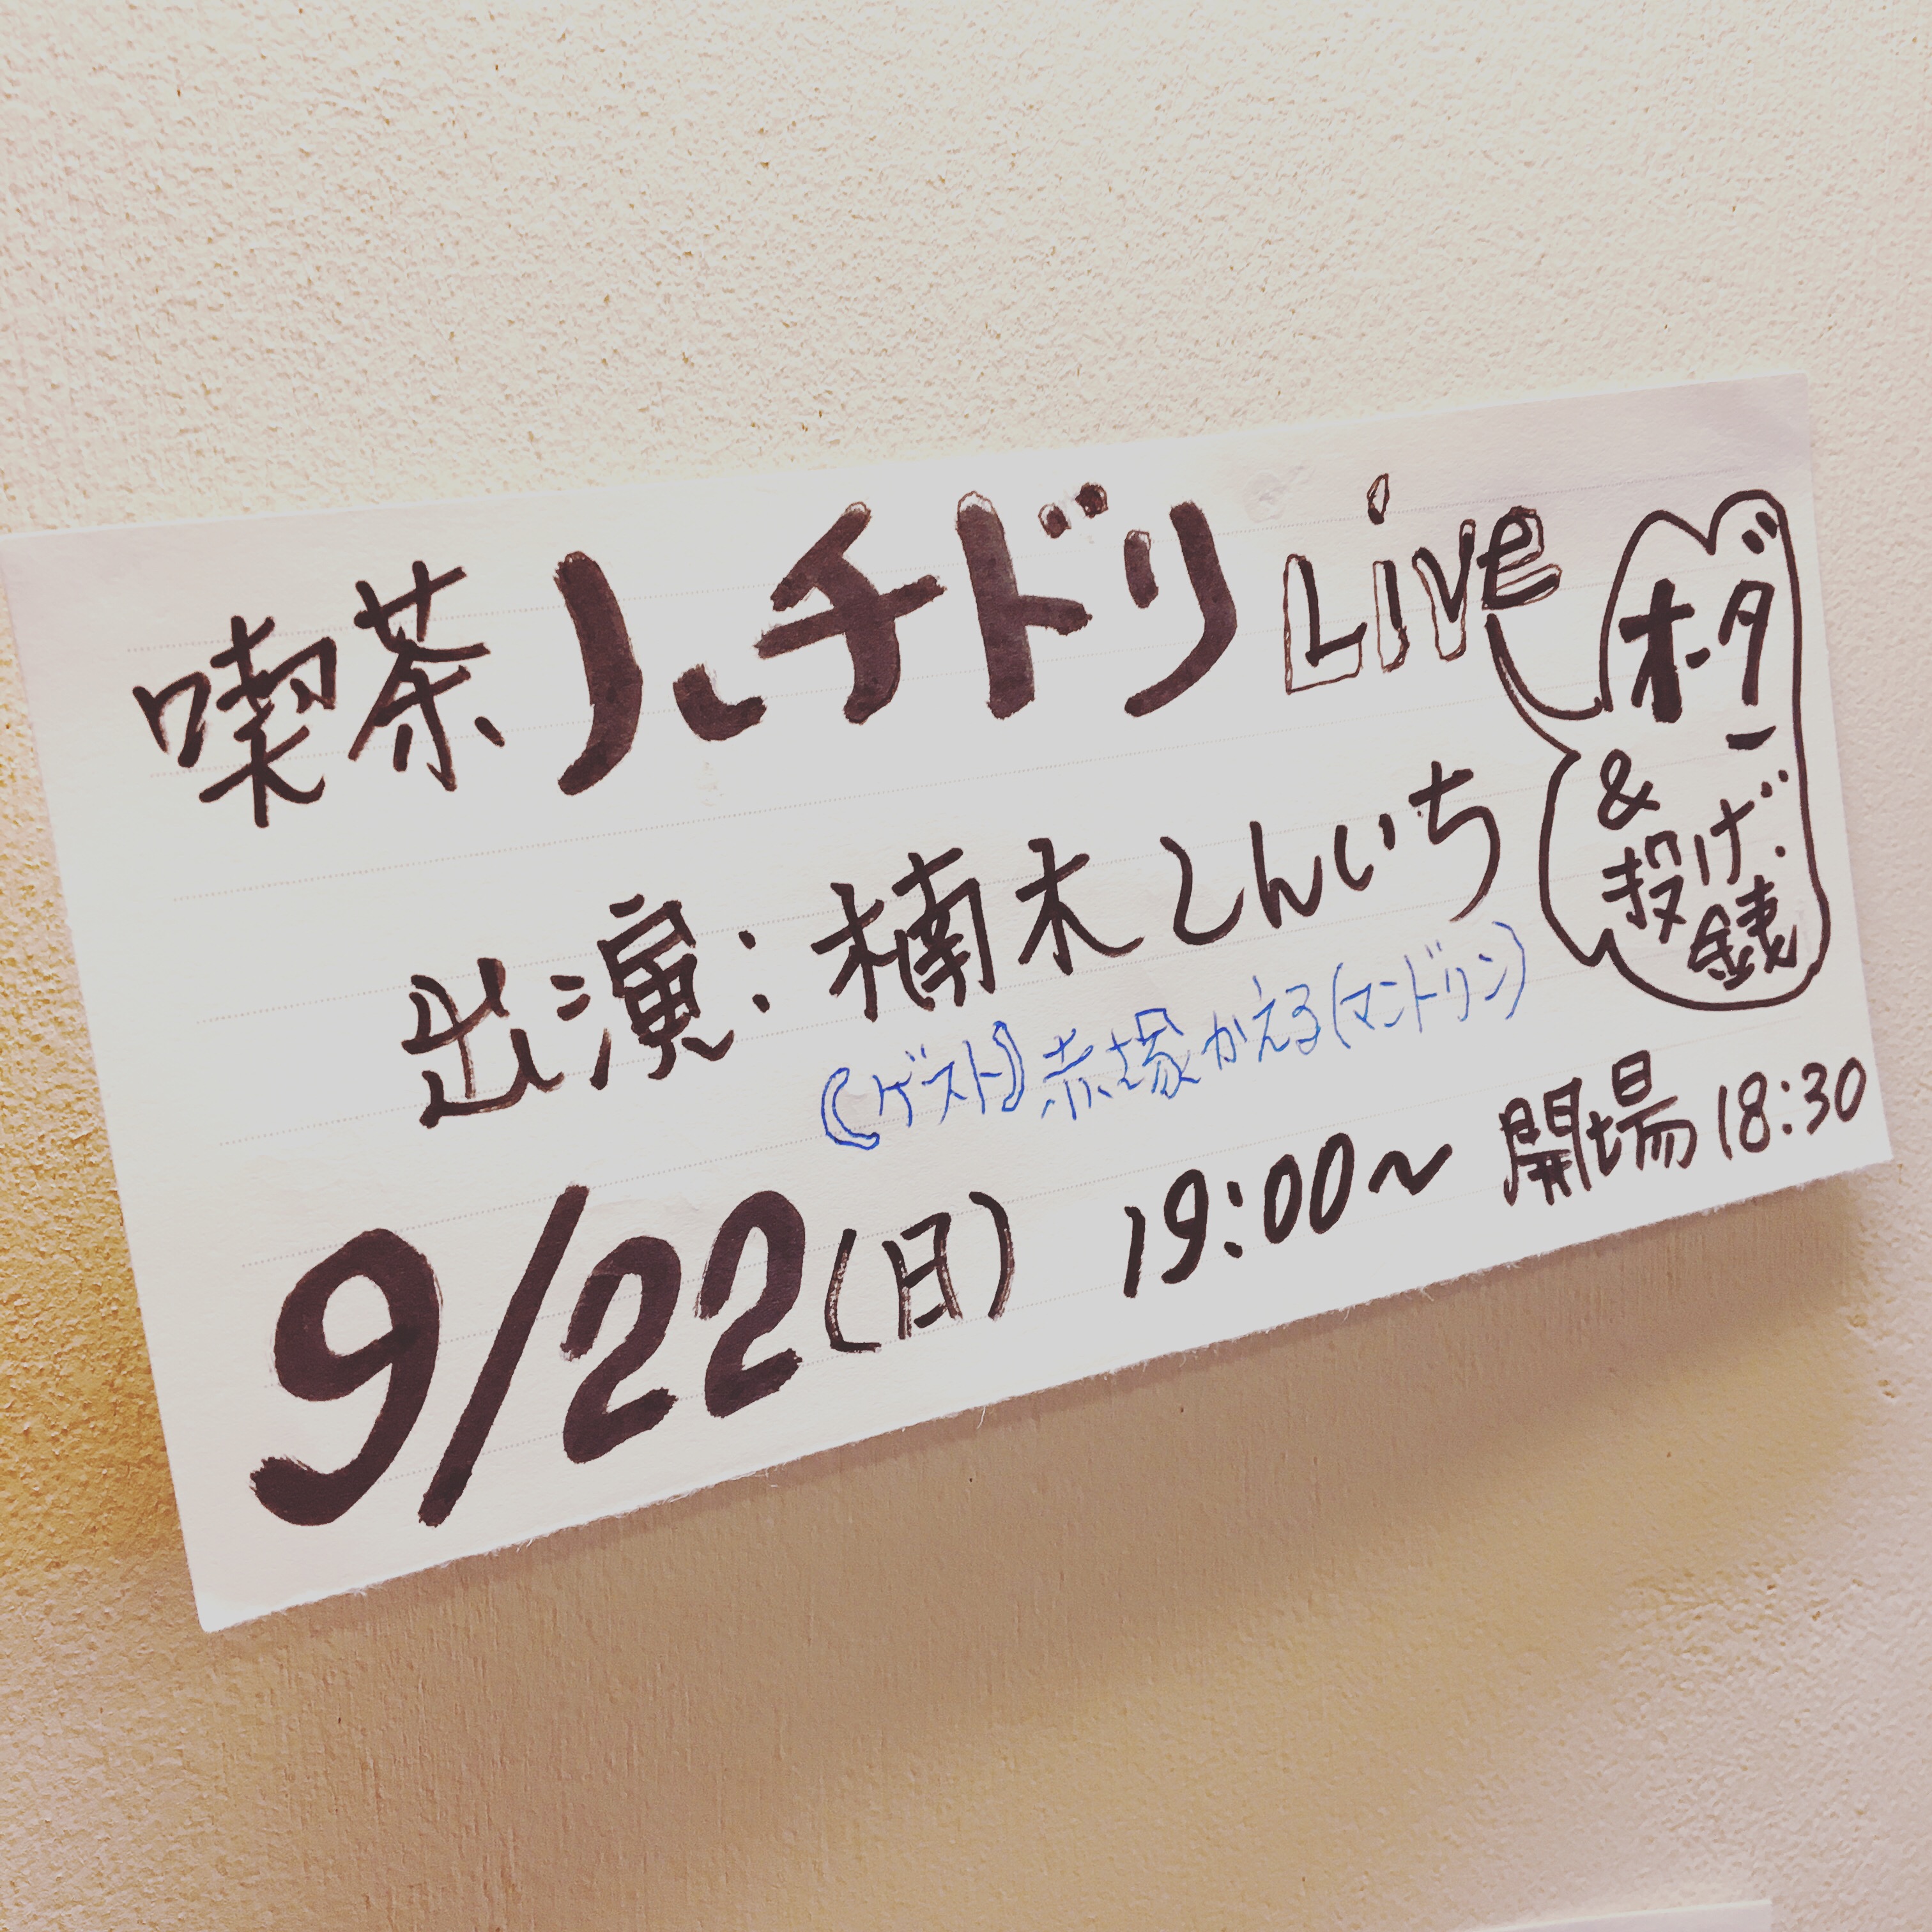 喫茶ハチドリLive
オーダー
&投げ銭
出演:楠木しんいち
《ゲスト》赤塚かえる(マンドリン)
9/22(日) 19:00〜 開場 18:30